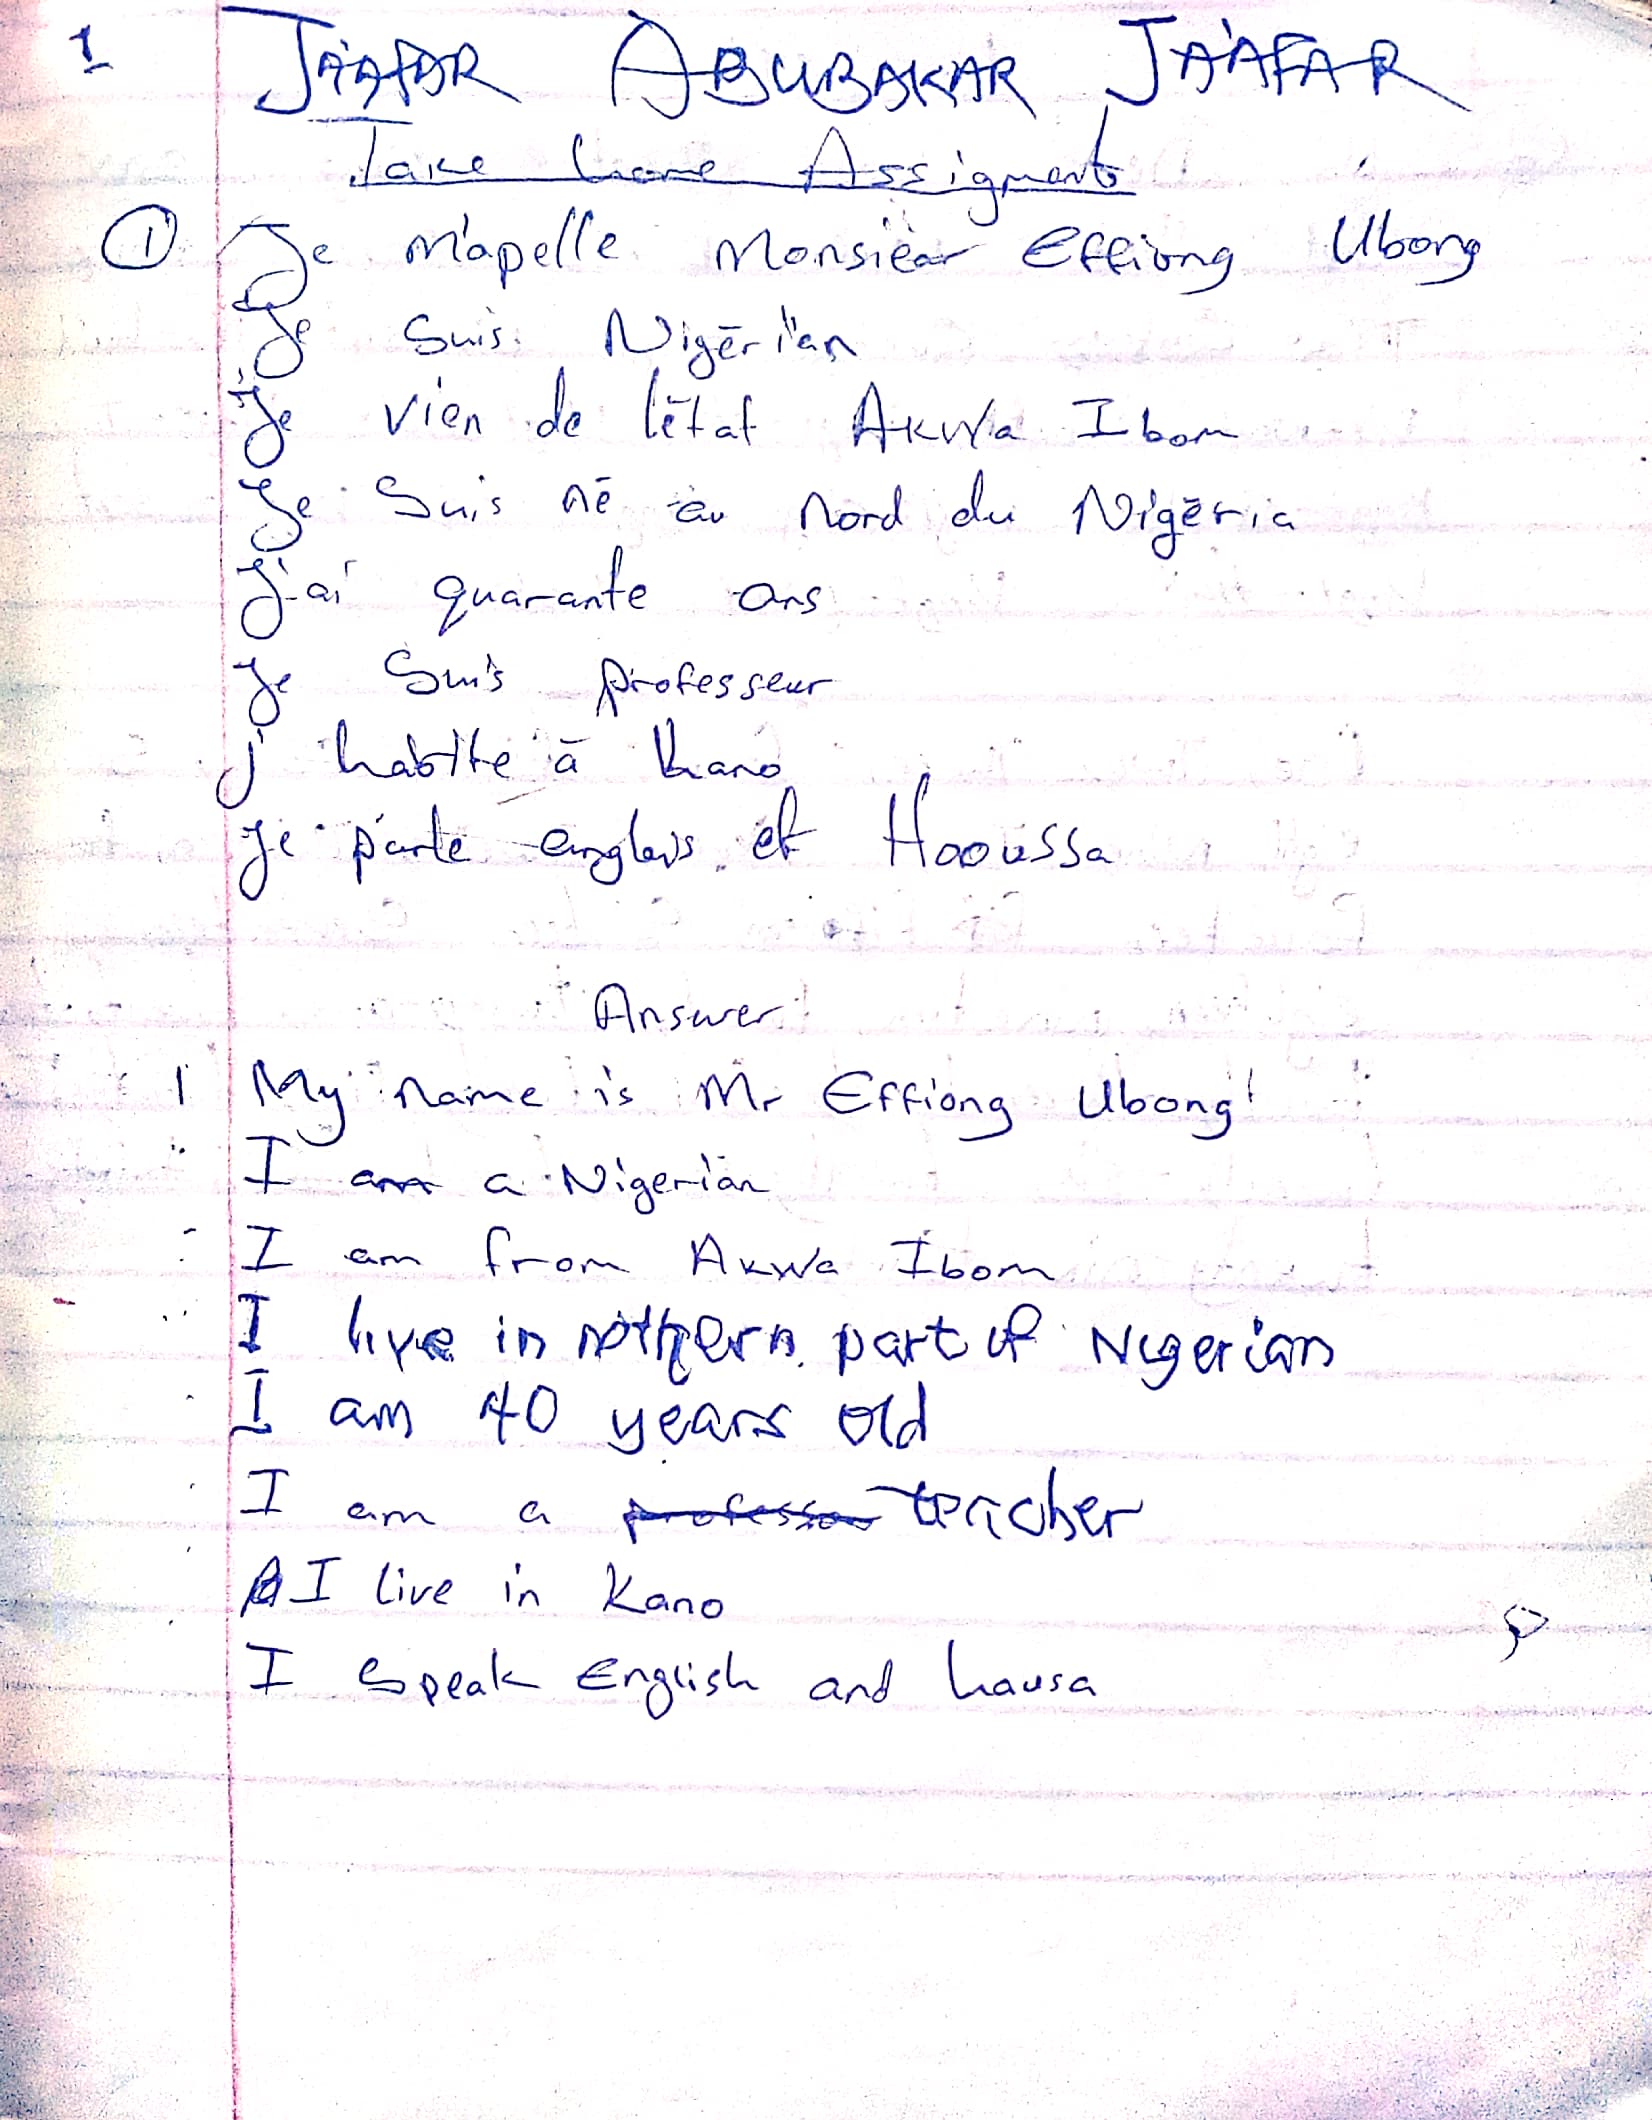 1 JA'AFAR ABUBAKAR JA'AFAR
Take home Assigment
① Je m'apelle Monsieur Effiong Ubong
Je Suis Nigērian
Je vien de l'ētat Akwa Ibom
Je Suis nē au nord du Nigēria
J'ai quarante ans
Je Suis professeur
j' habite ā Kano
Je parle anglais et Haoussa
Answer
1 My name is Mr Effiong Ubong
I am a Nigerian
I am from Akwa Ibom
I live in nothern part of Nigerian
I am 40 years old
I am a professor teacher
I live in Kano
I Speak English and hausa